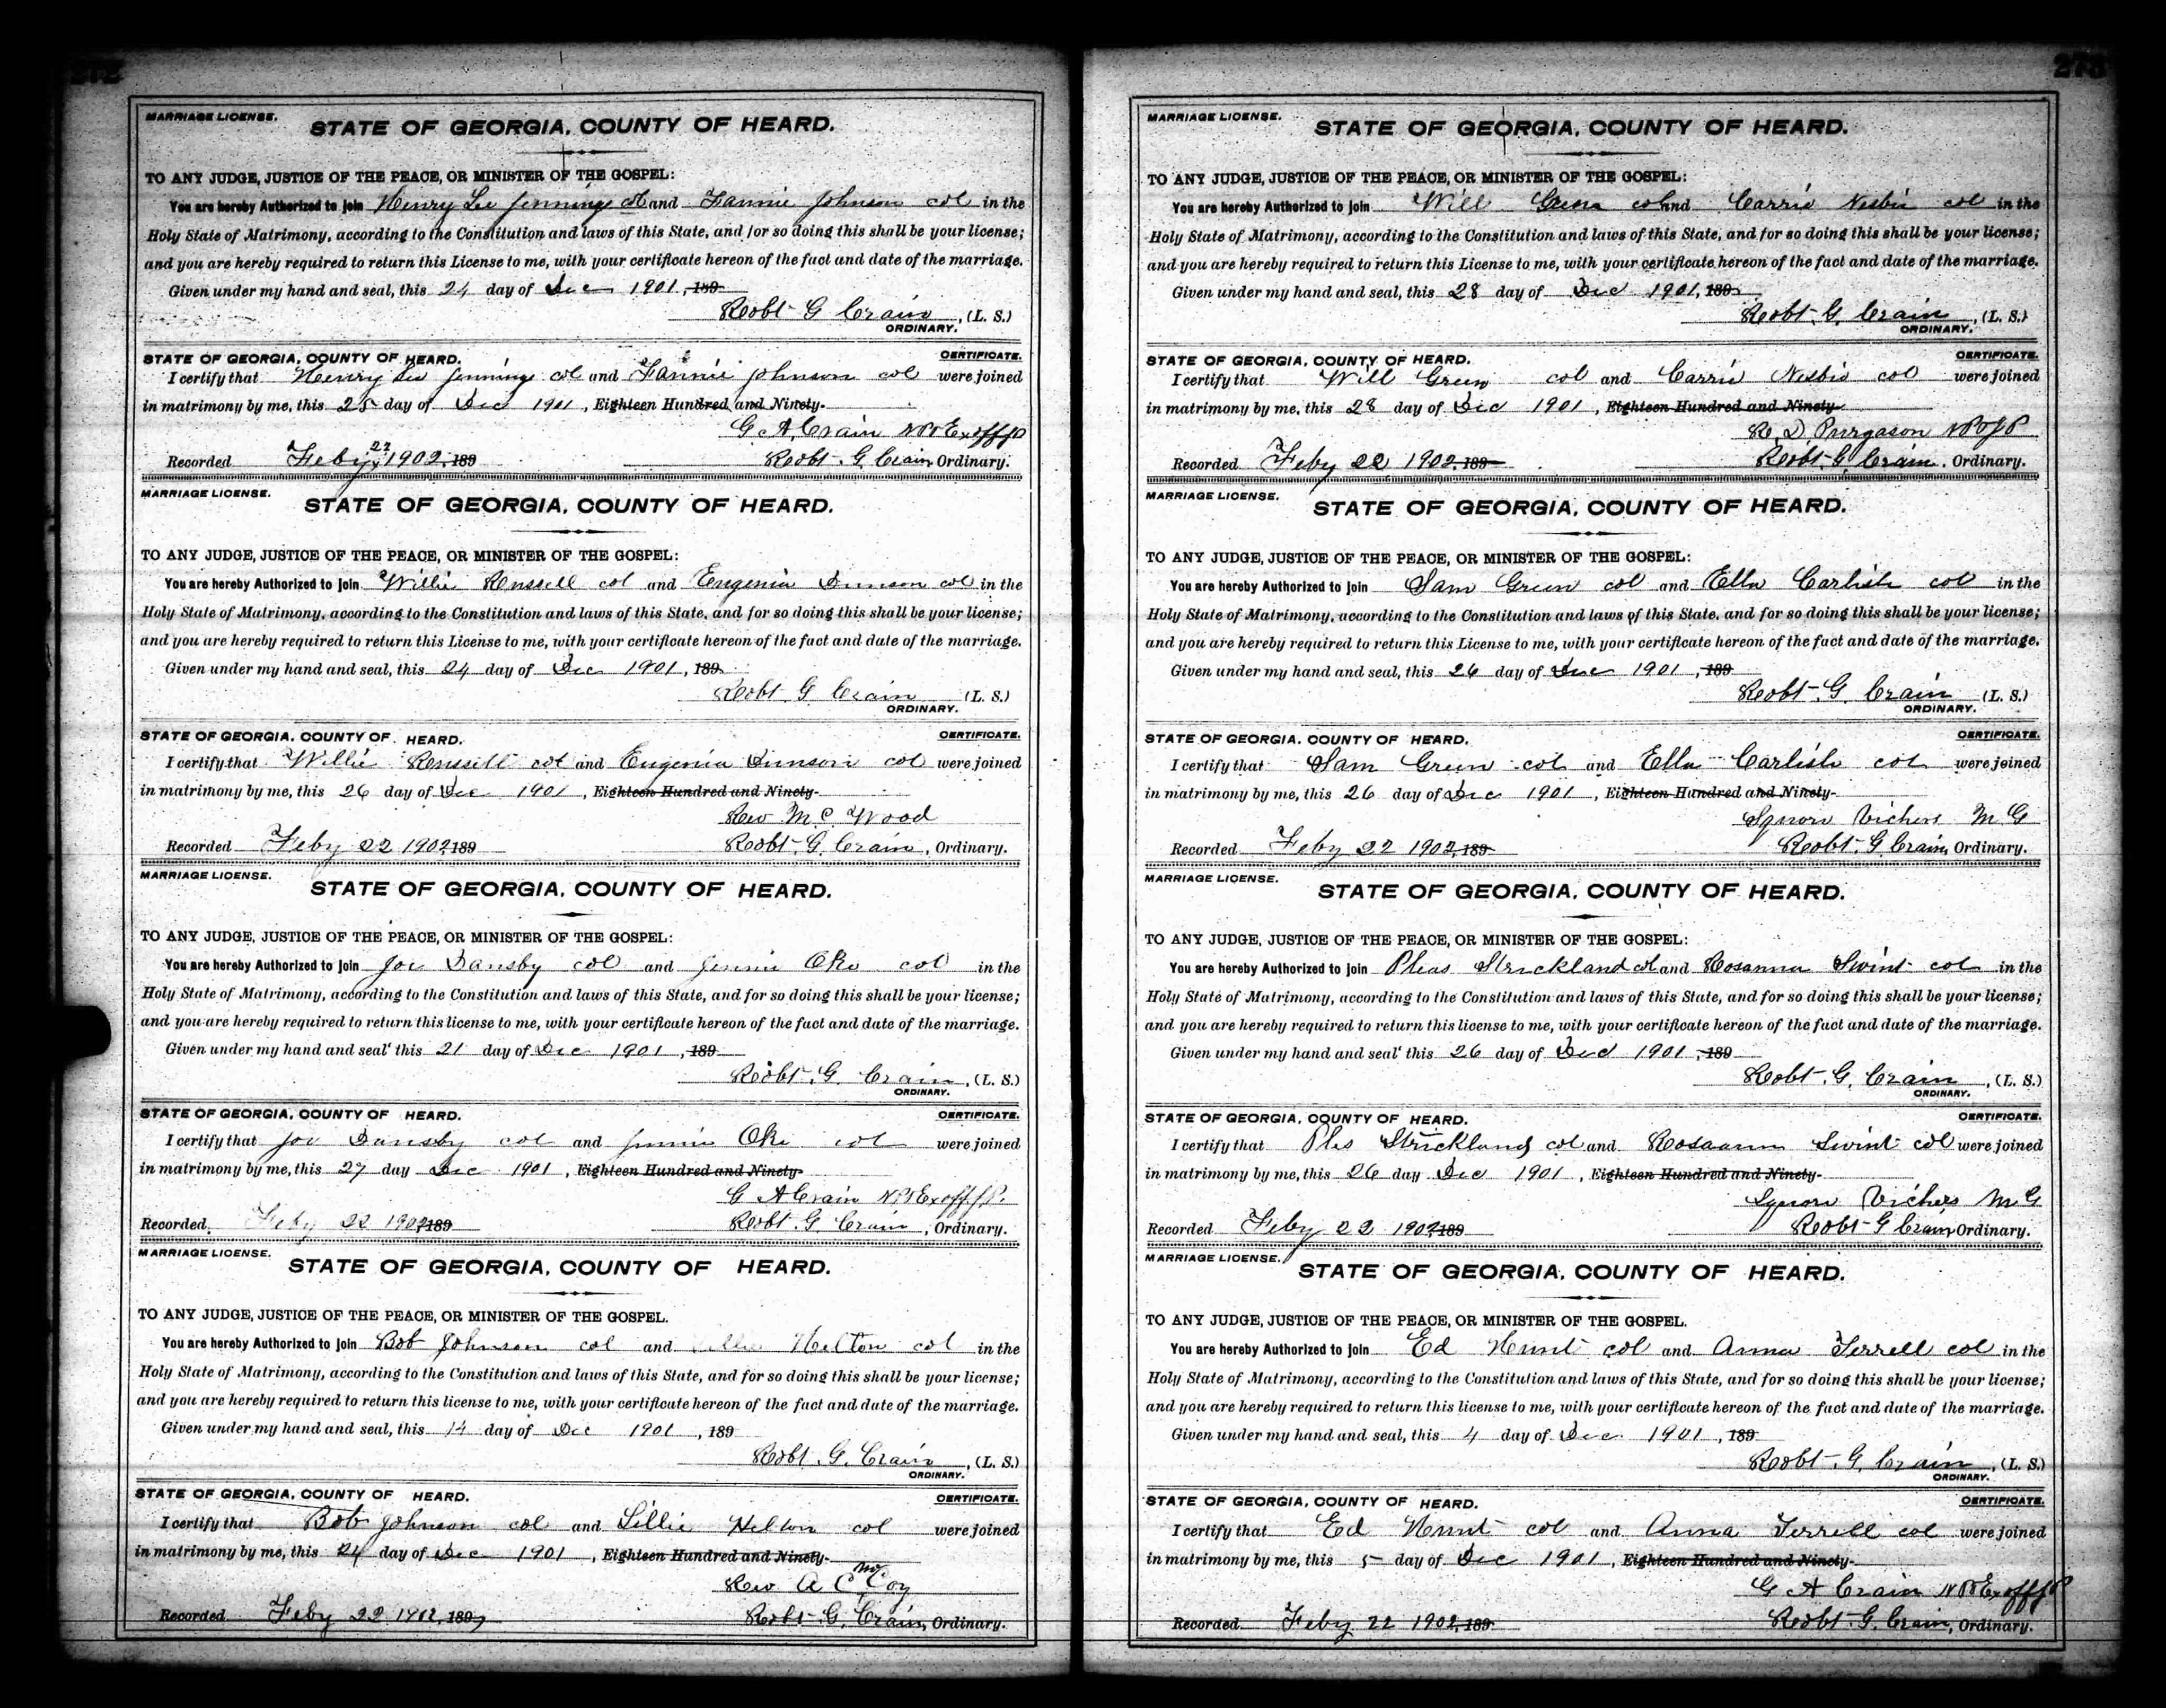 272
MARRIAGE LICENSE.
STATE OF GEORGIA, COUNTY OF HEARD.
TO ANY JUDGE, JUSTICE OF THE PEACE, OR MINISTER OF THE GOSPEL:
You are hereby Authorized to join Henry Lee Jennings col and Fannie Johnson col in the
Holy State of Matrimony, according to the Constitution and laws of this State, and for so doing this shall be your license;
and you are hereby required to return this License to me, with your certificate hereon of the fact and date of the marriage.
Given under my hand and seal, this 24 day of Dec 1901, 189
Robt G Crain, (L. S.)
ORDINARY.
STATE OF GEORGIA, COUNTY OF HEARD. CERTIFICATE.
I certify that Henry Lee Jennings col and Fannie Johnson col were joined
in matrimony by me, this 25 day of Dec 1901, Eighteen Hundred and Ninety-
G A Crain NP & Ex off JP
Recorded Feby 22 1902, 189 Robt. G. Crain, Ordinary.
MARRIAGE LICENSE.
STATE OF GEORGIA, COUNTY OF HEARD.
TO ANY JUDGE, JUSTICE OF THE PEACE, OR MINISTER OF THE GOSPEL:
You are hereby Authorized to join Willie Russell col and Eugenia Dunson col in the
Holy State of Matrimony, according to the Constitution and laws of this State, and for so doing this shall be your license;
and you are hereby required to return this License to me, with your certificate hereon of the fact and date of the marriage.
Given under my hand and seal, this 24 day of Dec 1901, 189
Robt. G Crain (L. S.)
ORDINARY.
STATE OF GEORGIA. COUNTY OF HEARD. CERTIFICATE.
I certify that Willie Russell col and Eugenia Dunson col were joined
in matrimony by me, this 26 day of Dec 1901, Eighteen Hundred and Ninety-
Rev M. C. Wood
Recorded Feby 22 1902, 189 Robt. G. Crain, Ordinary.
MARRIAGE LICENSE.
STATE OF GEORGIA, COUNTY OF HEARD.
TO ANY JUDGE, JUSTICE OF THE PEACE, OR MINISTER OF THE GOSPEL:
You are hereby Authorized to join Joe Dansby col and Jennie Oke col in the
Holy State of Matrimony, according to the Constitution and laws of this State, and for so doing this shall be your license;
and you are hereby required to return this license to me, with your certificate hereon of the fact and date of the marriage.
Given under my hand and seal this 21 day of Dec 1901, 189
Robt. G. Crain, (L. S.)
ORDINARY.
STATE OF GEORGIA, COUNTY OF HEARD. CERTIFICATE.
I certify that Joe Dansby col and Jennie Oke col were joined
in matrimony by me, this 27 day Dec 1901, Eighteen Hundred and Ninety-
G A Crain NP & Ex off. JP.
Recorded. Feby 22 1902, 189 Robt. G. Crain, Ordinary.
MARRIAGE LICENSE.
STATE OF GEORGIA, COUNTY OF HEARD.
TO ANY JUDGE, JUSTICE OF THE PEACE, OR MINISTER OF THE GOSPEL.
You are hereby Authorized to join Bob Johnson col and Lillie Helton col in the
Holy State of Matrimony, according to the Constitution and laws of this State, and for so doing this shall be your license;
and you are hereby required to return this license to me, with your certificate hereon of the fact and date of the marriage.
Given under my hand and seal, this 14 day of Dec 1901, 189
Robt. G. Crain, (L. S.)
ORDINARY.
STATE OF GEORGIA, COUNTY OF HEARD. CERTIFICATE.
I certify that Bob Johnson col and Lillie Helton col were joined
in matrimony by me, this 24 day of Dec 1901, Eighteen Hundred and Ninety-
Rev A C McCoy
Recorded Feby 22 1902, 189 Robt. G. Crain, Ordinary.
273
MARRIAGE LICENSE.
STATE OF GEORGIA, COUNTY OF HEARD.
TO ANY JUDGE, JUSTICE OF THE PEACE, OR MINISTER OF THE GOSPEL:
You are hereby Authorized to join Will Green col and Carrie Nesbie col in the
Holy State of Matrimony, according to the Constitution and laws of this State, and for so doing this shall be your license;
and you are hereby required to return this License to me, with your certificate hereon of the fact and date of the marriage.
Given under my hand and seal, this 28 day of Dec 1901, 189
Robt. G. Crain, (L. S.)
ORDINARY.
STATE OF GEORGIA, COUNTY OF HEARD. CERTIFICATE.
I certify that Will Green col and Carrie Nesbie col were joined
in matrimony by me, this 28 day of Dec 1901, Eighteen Hundred and Ninety-
R. D. Purgason NP & JP
Recorded Feby 22 1902, 189 Robt. G. Crain, Ordinary.
MARRIAGE LICENSE.
STATE OF GEORGIA, COUNTY OF HEARD.
TO ANY JUDGE, JUSTICE OF THE PEACE, OR MINISTER OF THE GOSPEL:
You are hereby Authorized to join Sam Green col and Ella Carlisle col in the
Holy State of Matrimony, according to the Constitution and laws of this State, and for so doing this shall be your license;
and you are hereby required to return this License to me, with your certificate hereon of the fact and date of the marriage.
Given under my hand and seal, this 26 day of Dec 1901, 189
Robt. G Crain (L. S.)
ORDINARY.
STATE OF GEORGIA. COUNTY OF HEARD. CERTIFICATE.
I certify that Sam Green col and Ella Carlisle col were joined
in matrimony by me, this 26 day of Dec 1901, Eighteen Hundred and Ninety-
Vickers M G
Recorded Feby 22 1902, 189 Robt. G. Crain, Ordinary.
MARRIAGE LICENSE.
STATE OF GEORGIA, COUNTY OF HEARD.
TO ANY JUDGE, JUSTICE OF THE PEACE, OR MINISTER OF THE GOSPEL:
You are hereby Authorized to join Pleas Strickland col and Rosanna Swint col in the
Holy State of Matrimony, according to the Constitution and laws of this State, and for so doing this shall be your license;
and you are hereby required to return this license to me, with your certificate hereon of the fact and date of the marriage.
Given under my hand and seal this 26 day of Dec 1901, 189
Robt. G. Crain, (L. S.)
ORDINARY.
STATE OF GEORGIA, COUNTY OF HEARD. CERTIFICATE.
I certify that Ples Strickland col and Rosaann Swint col were joined
in matrimony by me, this 26 day Dec 1901, Eighteen Hundred and Ninety-
Vickers M G
Recorded Feby 22 1902, 189 Robt G Crain, Ordinary.
MARRIAGE LICENSE.
STATE OF GEORGIA, COUNTY OF HEARD.
TO ANY JUDGE, JUSTICE OF THE PEACE, OR MINISTER OF THE GOSPEL.
You are hereby Authorized to join Ed Hunt col and Anna Terrell col in the
Holy State of Matrimony, according to the Constitution and laws of this State, and for so doing this shall be your license;
and you are hereby required to return this license to me, with your certificate hereon of the fact and date of the marriage.
Given under my hand and seal, this 4 day of Dec 1901, 189
Robt. G. Crain, (L. S.)
ORDINARY.
STATE OF GEORGIA, COUNTY OF HEARD. CERTIFICATE.
I certify that Ed Hunt col and Anna Terrell col were joined
in matrimony by me, this 5 day of Dec 1901, Eighteen Hundred and Ninety-
G A Crain NP & Ex off JP
Recorded Feby 22 1902, 189 Robt. G. Crain, Ordinary.